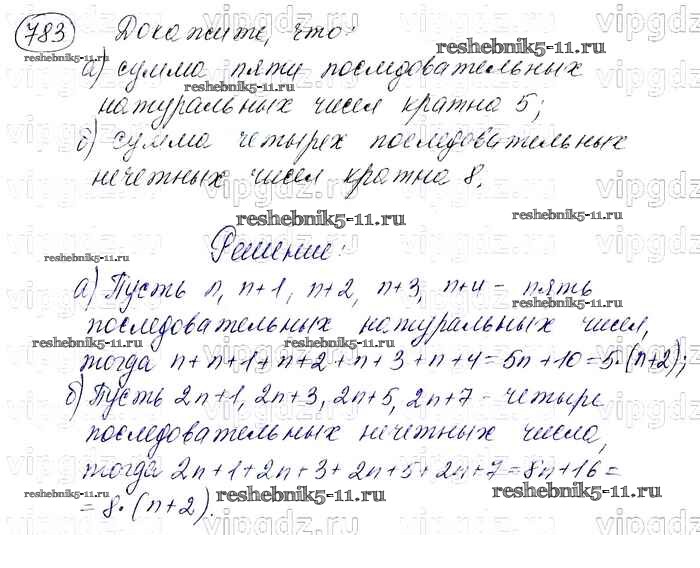 783 Докажите, что:
а) сумма пяти последовательных
натуральных чисел кратна 5;
б) сумма четырех последовательных
нечетных чисел кратна 8.
Решение:
а) Пусть n, n+1, n+2, n+3, n+4 - пять
последовательных натуральных чисел,
тогда n+n+1+n+2+n+3+n+4=5n+10=5·(n+2);
б) Пусть 2n+1, 2n+3, 2n+5, 2n+7 - четыре
последовательных нечетных числа,
тогда 2n+1+2n+3+2n+5+2n+7=8n+16=
=8·(n+2).
reshebnik5-11.ru
vipgdz